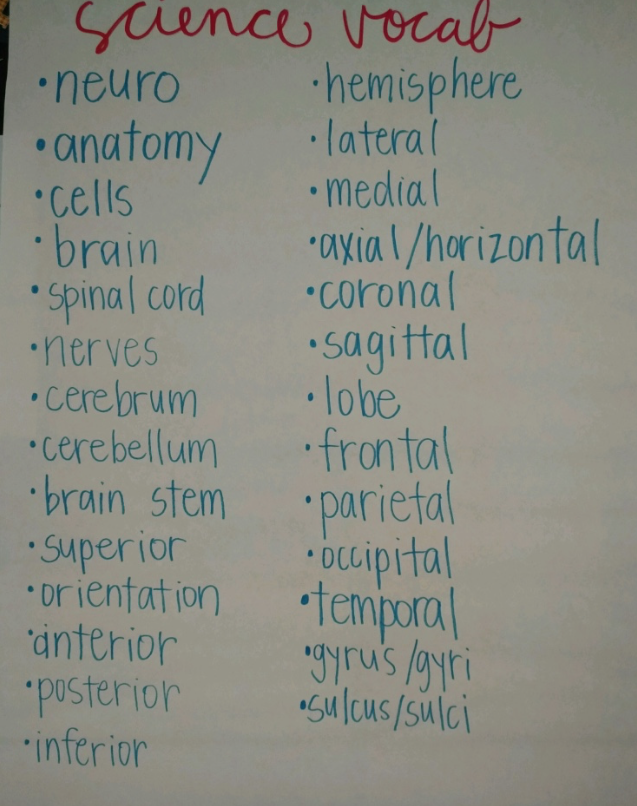 science vocab
•neuro
•anatomy
•cells
•brain
•spinal cord
•nerves
•cerebrum
•cerebellum
•brain stem
•superior
•orientation
•anterior
•posterior
•inferior
•hemisphere
•lateral
•medial
•axial/horizontal
•coronal
•sagittal
•lobe
•frontal
•parietal
•occipital
•temporal
•gyrus/gyri
•sulcus/sulci